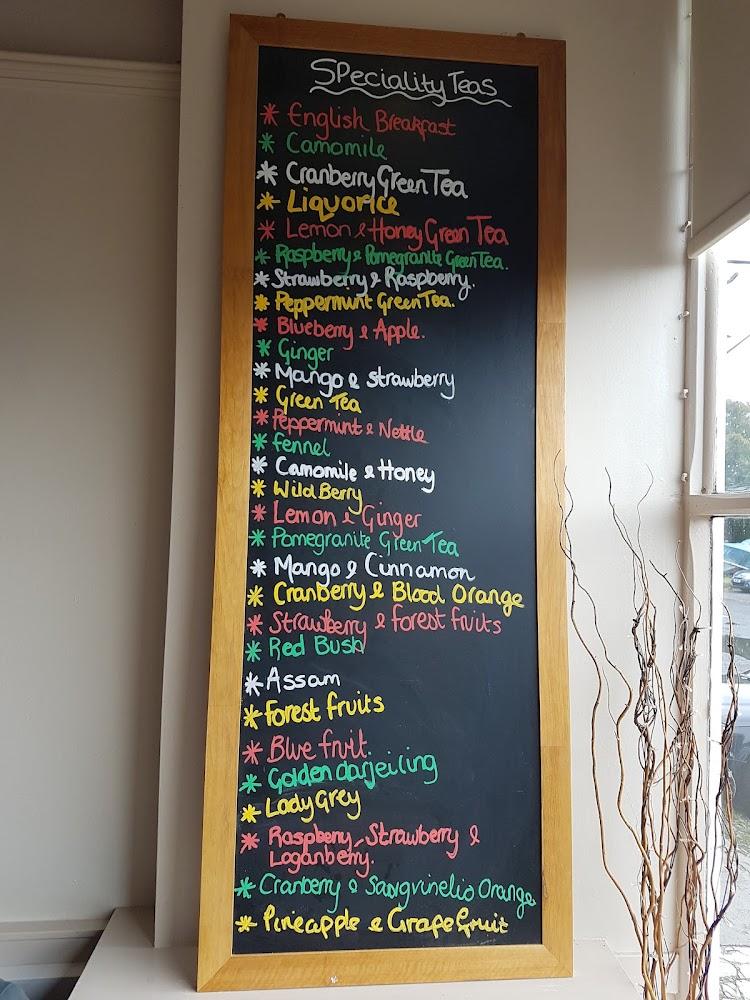 Speciality Teas
* English Breakfast
* Camomile
* Cranberry Green Tea
* Liquorice
* Lemon & Honey Green Tea
* Raspberry & Pomegranite Green Tea.
* Strawberry & Raspberry.
* Peppermint Green Tea.
* Blueberry & Apple.
* Ginger
* Mango & Strawberry
* Green Tea
* Peppermint & Nettle
* fennel
* Camomile & Honey
* Wild Berry
* Lemon & Ginger
* Pomegranite Green Tea
* Mango & Cinnamon
* Cranberry & Blood Orange
* Strawberry & forest fruits
* Red Bush
* Assam
* Forest fruits
* Blue fruit.
* Golden darjeiling
* Lady Grey
* Raspberry, Strawberry &
Loganberry.
* Cranberry & Sangvinelio Orange
* Pineapple & Grapefruit